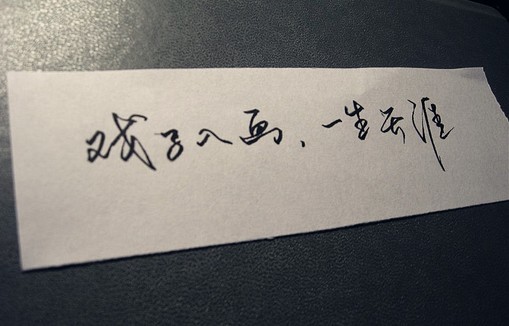 戏子入画、一生天涯